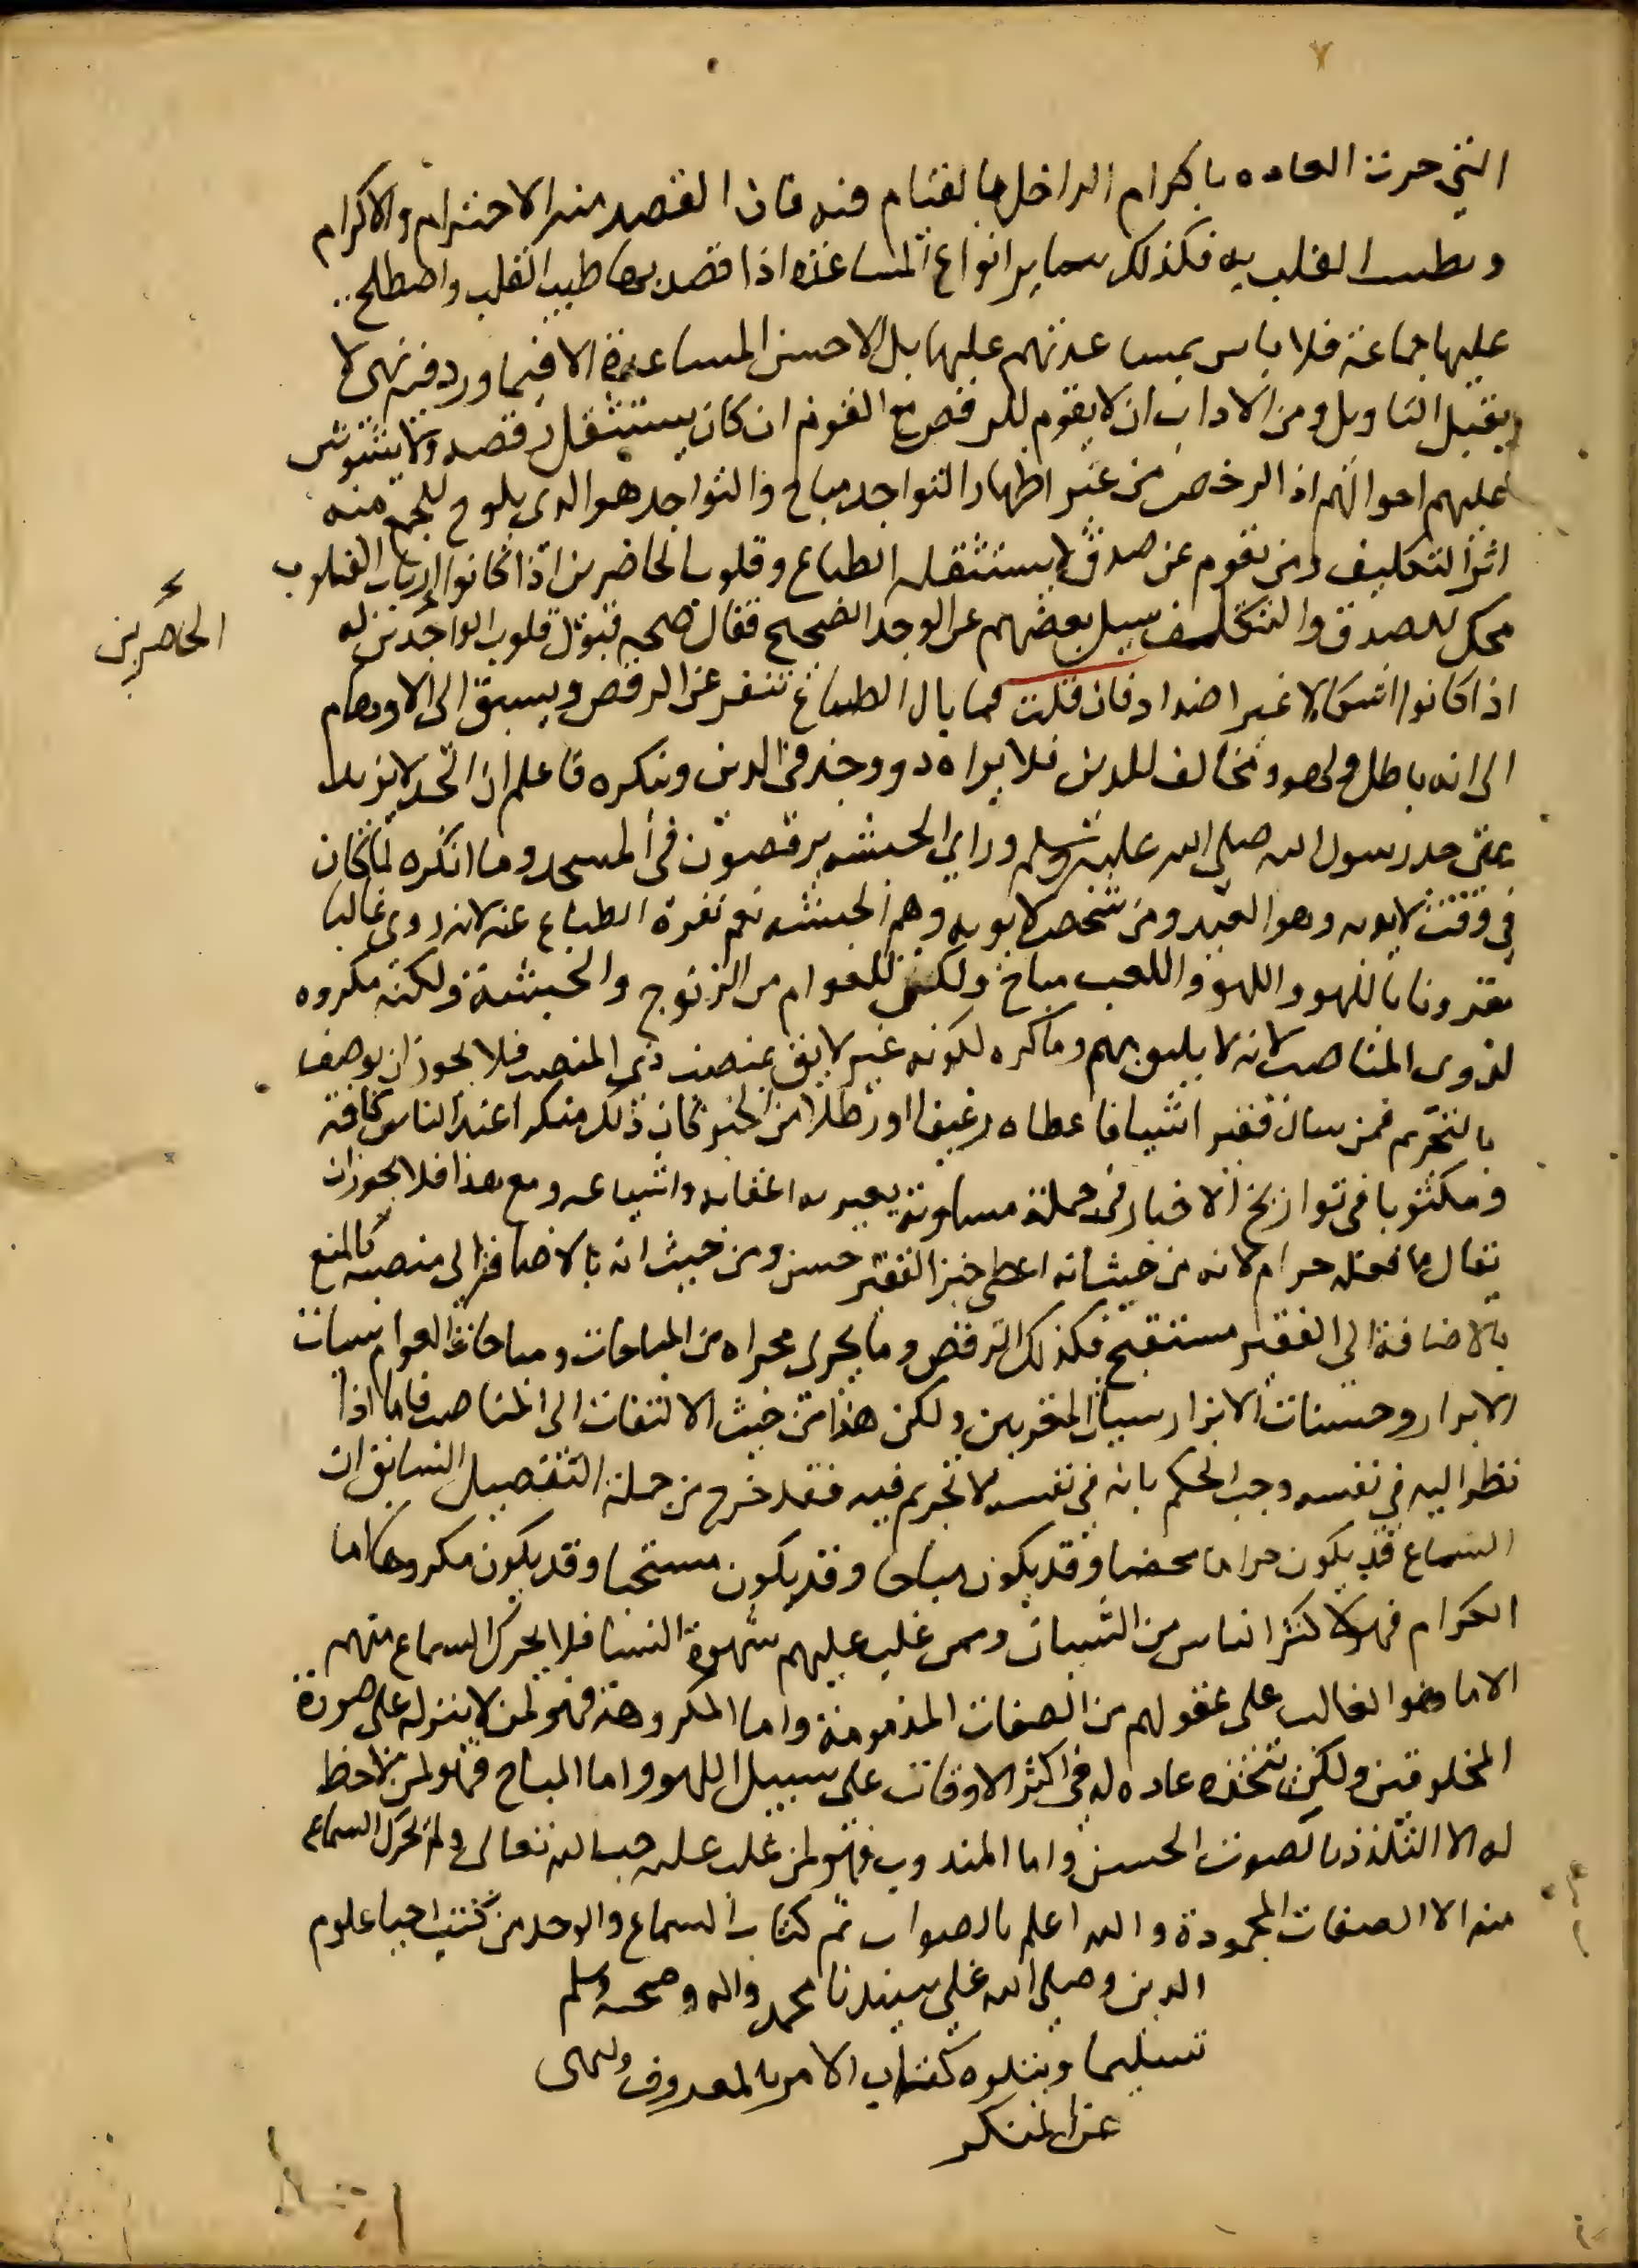 التي جرت العاده باكرام الداخل بالقيام فيه فان القصد منه الاحترام والاكرام
وتطييب القلب به فكذلك ساير انواع المساعده اذا قصد بها طيب القلب واصطلح
عليها جماعة فلا باس بمساعدتهم عليها بل الاحسن المساعدة الا فيما ورد فيه نهي لا
يقبل التاويل ومن الاداب ان لا يقوم للرقص مع القوم ان كان يستثقل رقصه ولا يشوش
عليهم احوالهم اذ الرخص من غير اظهار التواجد مباح والتواجد هو الدي يلوح للجمع منه
اثر التكليف ومن يقوم عن صدق لا يستثقله الطباع وقلوب الحاضرين اذا كانوا ارباب القلوب
محك للصدق والتكلف سيل بعضهم عن الوجد الصحيح فقال صحه قبول قلوب الواجدين له
الحاضرين
اذا كانوا اشكالا غير اضداد فان قلت فما بال الطباع تنفر عن الرقص ويسبق الى الاوهام
الى انه باطل ولهو ومخالف للدين فلا يراه دو وجد في الدين وينكره فاعلم ان الجد لا يزيد
على جد رسول الله صلى الله عليه وسلم وراي الحبشه يرقصون في المسجد وما انكره لما كان
في وقت لايق به وهو العيد ومن شخص لايق به وهم الحبشه نعم نفرة الطباع عنه لانه روي غالبا
مقرونا باللهو واللهو واللعب مباح ولكن للعوام من الزنوج والحبشة ولكنه مكروه
لذوي المناصب لانه لا يليق بهم وما كره لكونه غير لايق بمنصب ذي المنصب فلا يجوز ان يوصف
بالتحريم فمن سال فقير اشيا فاعطاه رغيفا او رطلا من الخبز كان ذلك منكرا عند الناس كافة
ومكتوبا في تواريخ الاخبار في جملة مساوية يعير به اعقابه واشياعه ومع هذا فلا يجوز ان
يقال ما فعله حرام لانه من حيث انه اعطى خبز الفقير حسن ومن حيث انه بالاضافة الى منصبه كالمنع
بالاضافة الى الفقير مستقبح فكذلك الرقص وما يجري مجراه من المباحات ومباحات العوام سيات
الابرار وحسنات الابرار سيات المقربين ولكن هذا من حيث الالتفات الى المناصب فاما اذا
نظر اليه في نفسه وجب الحكم بانه في نفسه لا تحريم فيه فقد خرج من جملة التفصيل السابق ان
السماع قد يكون حراما محضا وقد يكون مباحا وقد يكون مستحبا وقد يكون مكروها اما
الحرام فهو لاكثر الناس من الشبان ومن غلب عليهم شهوة النسا فلا يحرك السماع منهم
الا ما هو الغالب على عقولهم من الصفات المذمومة واما المكروهة فهو لمن لا ينزله على صورة
المخلوقين ولكن يتخذه عاده له في اكثر الاوقات على سبيل اللهو واما المباح فهو لمن لا حظ
له الا التلذذ بالصوت الحسن واما المندوب فهو لمن غلب عليه حب الله تعالى ولم يحرك السماع
منه الا الصفات المحمودة والله اعلم بالصواب تم كتاب السماع والوجد من كتب احيا علوم
الدين وصلى الله على سيدنا محمد واله وصحبه وسلم
تسليما ويتلوه كتاب الامر بالمعروف والنهى
عن المنكر